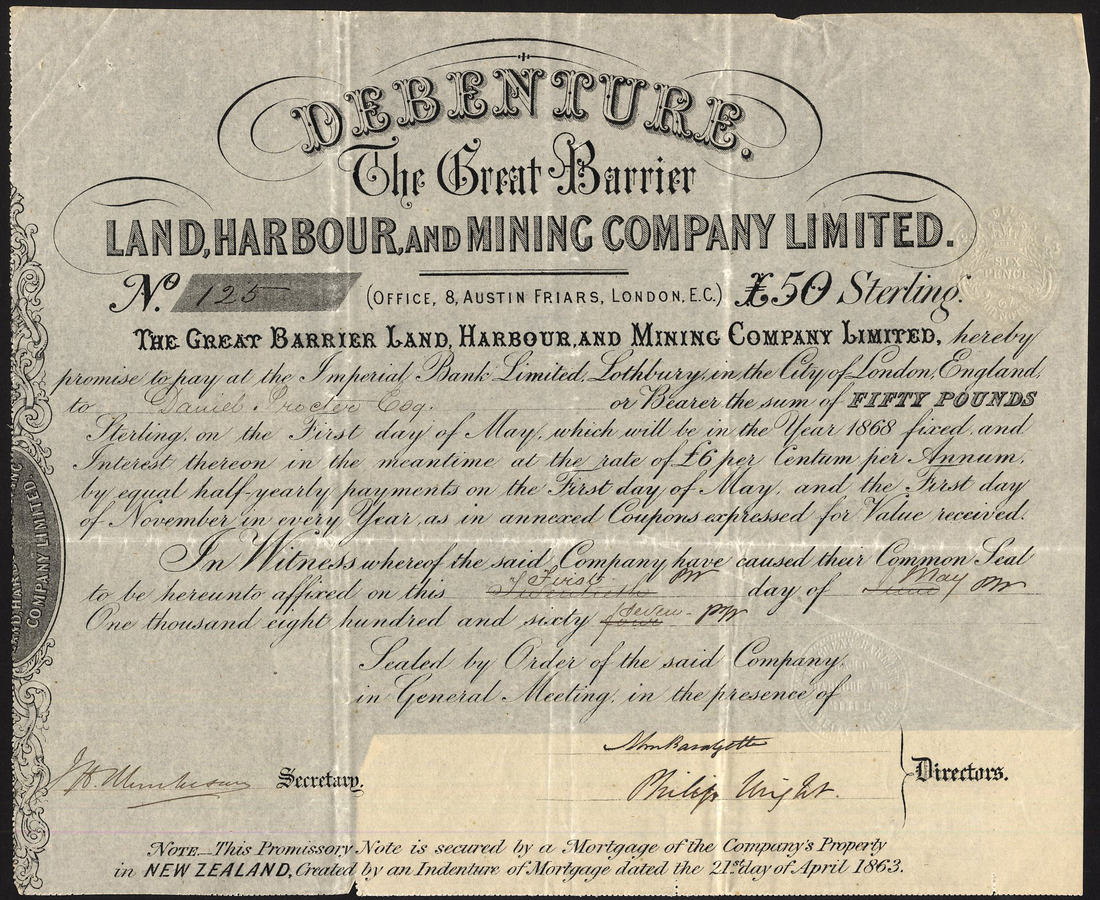 DEBENTURE.
The Great Barrier
LAND, HARBOUR, AND MINING COMPANY LIMITED.
No. 125 (OFFICE, 8, AUSTIN FRIARS, LONDON, E.C.) £50 Sterling.
SIX
PENCE
THE GREAT BARRIER LAND, HARBOUR, AND MINING COMPANY LIMITED, hereby
promise to pay at the Imperial Bank Limited, Lothbury, in the City of London, England,
to Daniel Procter Esq. or Bearer the sum of FIFTY POUNDS
Sterling, on the First day of May, which will be in the Year 1868 fixed, and
Interest thereon in the meantime at the rate of £6 per Centum per Annum,
by equal half-yearly payments on the First day of May, and the First day
of November in every Year, as in annexed Coupons expressed for Value received.
COMPANY LIMITED.
In Witness whereof the said Company have caused their Common Seal
to be hereunto affixed on this Twentieth First PW day of June May PW
One thousand eight hundred and sixty four Seven PW
Sealed by Order of the said Company,
in General Meeting, in the presence of
Secretary.
Philip Wright
Directors.
NOTE.—This Promissory Note is secured by a Mortgage of the Company's Property
in NEW ZEALAND, Created by an Indenture of Mortgage dated the 21st day of April 1863.